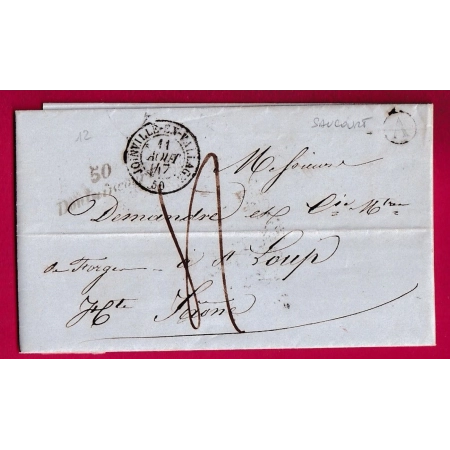 SAUCOURT
A
12
JOINVILLE-EN-VALLAGE
11
AOUT
47
50
50
Doulaincourt
Messieurs
Demandre et Cie Mtres
de Forges à St Loup
Hte Saône
4